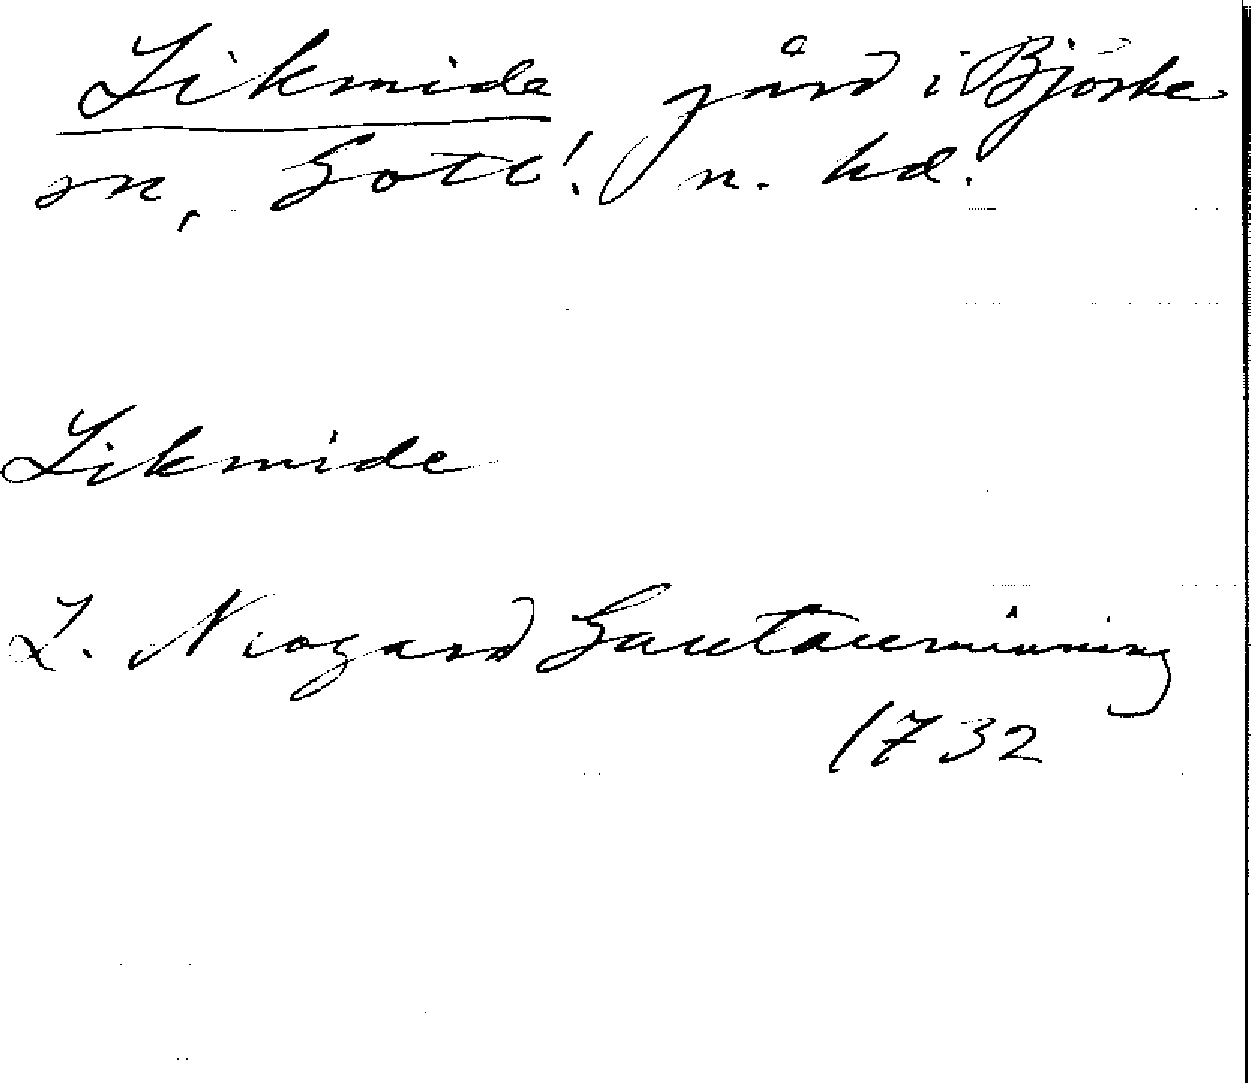 Likmide gård i Björke
sn, Gotl! n. hd.
Likmide
L. Niogard Gautauminning
1732